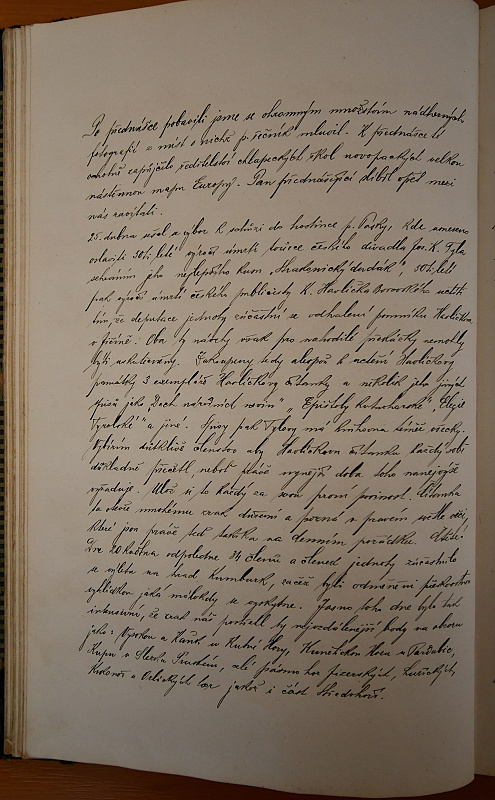 Po přednášce pobavili jsme se ohromným množstvím nádherných
fotografií z míst o nichž p. řečník mluvil. K přednášce té
ochotně zapůjčilo ředitelství chlapeckých škol novopackých velkou
nástěnnou mapu Evropy. Pan přednášející slíbil opět mezi
nás zavítati.
25. dubna sešel se výbor k schůzi do hostince p. Pásky, kde usneseno
oslaviti 50ti leté výročí úmrtí tvůrce českého divadla Jos. K. Tyla
sehráním jeho nejlepšího kusu „Strakonický dudák", 50ti leté
pak výročí úmrtí českého publicisty K. Havlíčka Borovského uctíti
tím, že deputace jednoty súčastní se odhalení pomníku Havlíčkova
v Jičíně. Oba ty návrhy však pro nahodilé překážky nemohly
býti uskutečněny. Zakoupeny tedy alespoň k uctění Havlíčkovy
památky 3 exempláře Havlíčkovy čítanky a několik jeho jiných
spisů jako „Duch národních novin" „Epištoly kutnohorské", „Elegie
Tyrolské" a jiné. Spisy pak Tylovy má knihovna téměř všecky.
Vybízím důtklivě členstvo aby Havlíčkovu čítanku každý sobě
důkladně přečetl, neboť právě nynější doba toho nanejvýše
vyžaduje. Ulož si to každý za svou první povinnost. Čítanka
ta otevře mnohému zrak duševní a pozná v pravém světle věci,
které jsou právě teď takřka na denním pořádku.
Dne 20 května odpoledne 34 členů a členek jednoty súčastnilo
se výletu na hrad Kumburk, začež byli odměněni překrásnou
vyhlídkou jaká málokdy se vyskytne. Jasno toho dne bylo tak
intensivní, že zrak náš postřehl ty nejvzdálenější body na obzoru
jako: Vysokou a Kaňk u Kutné Hory, Kunětickou Horu u Pardubic,
a celé pásmo hor jizerských, Lužických,
Krkonoš a Orlických hor jakož i část Středohoří.